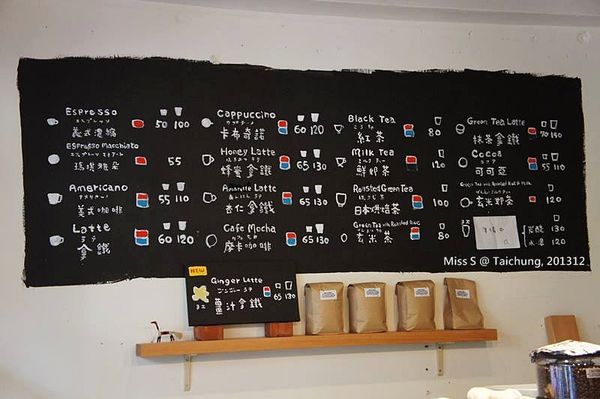 Espresso
義式濃縮
50 100
Espresso Macchiato
瑪琪雅朵
55
Americano
美式咖啡
55 70
Latte
拿鐵
60 120
Cappuccino
卡布奇諾
60 120
Honey Latte
蜂蜜拿鐵
65 130
Amaretto Latte
杏仁拿鐵
65 130
Cafe Mocha
摩卡咖啡
65 130
Black Tea
紅茶
80
Milk Tea
鮮奶茶
100
Roasted Green Tea
日本烘焙茶
80
Green Tea with Roasted Rice
玄米茶
80
Green Tea Latte
抹茶拿鐵
70 140
Cocoa
可可亞
55 110
Green Tea with Roasted Rice & Milk
玄米奶茶
120
130
冰滴 120
NEW
Ginger Latte
薑汁拿鐵
65 130
Miss S @ Taichung, 201312